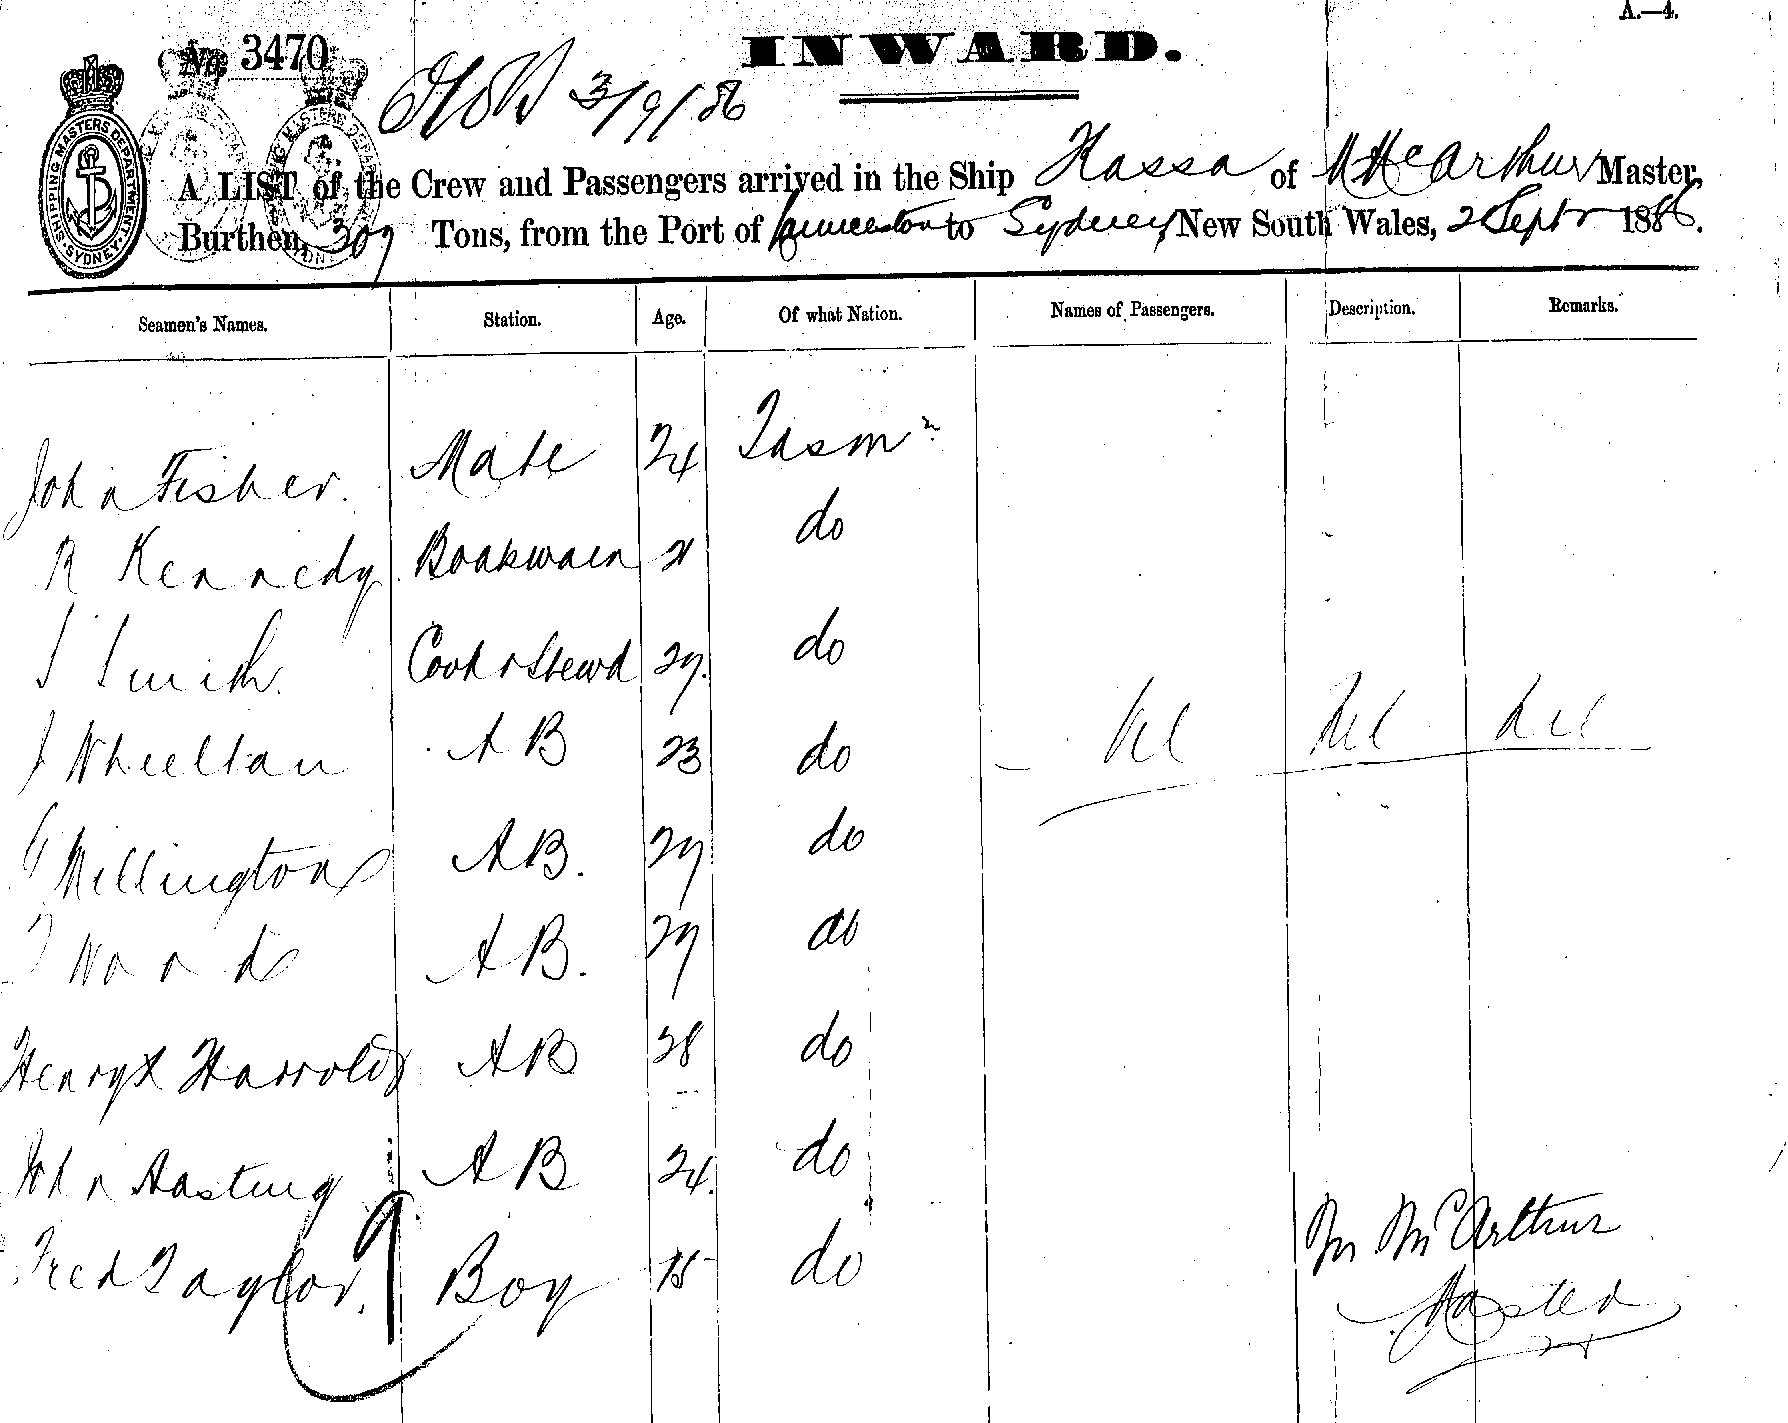 A.—4.
No. 3470
INWARD.
3/9/86
SHIPPING MASTERS DEPARTMENT
SYDNEY
A LIST of the Crew and Passengers arrived in the Ship Kassa of M McArthur Master,
Burthen, 309 Tons, from the Port of Launceston to Sydney, New South Wales, 2 Septr 1886.
Seamen's Names. Station. Age. Of what Nation. Names of Passengers. Description. Remarks.
John Fisher. Mate 24 Tasmn
R Kennedy Boatswain 21 do
J Smith. Cook & Stewd 27. do
J Wheeltan A B 23 do
Nil Nil Nil
Millington A B. 27 do
Wood A B. 27 do
Henry Harrold A B 28 do
John Hasting A B 24. do
Fred Taylor. Boy 15 do
9
M McArthur
Master